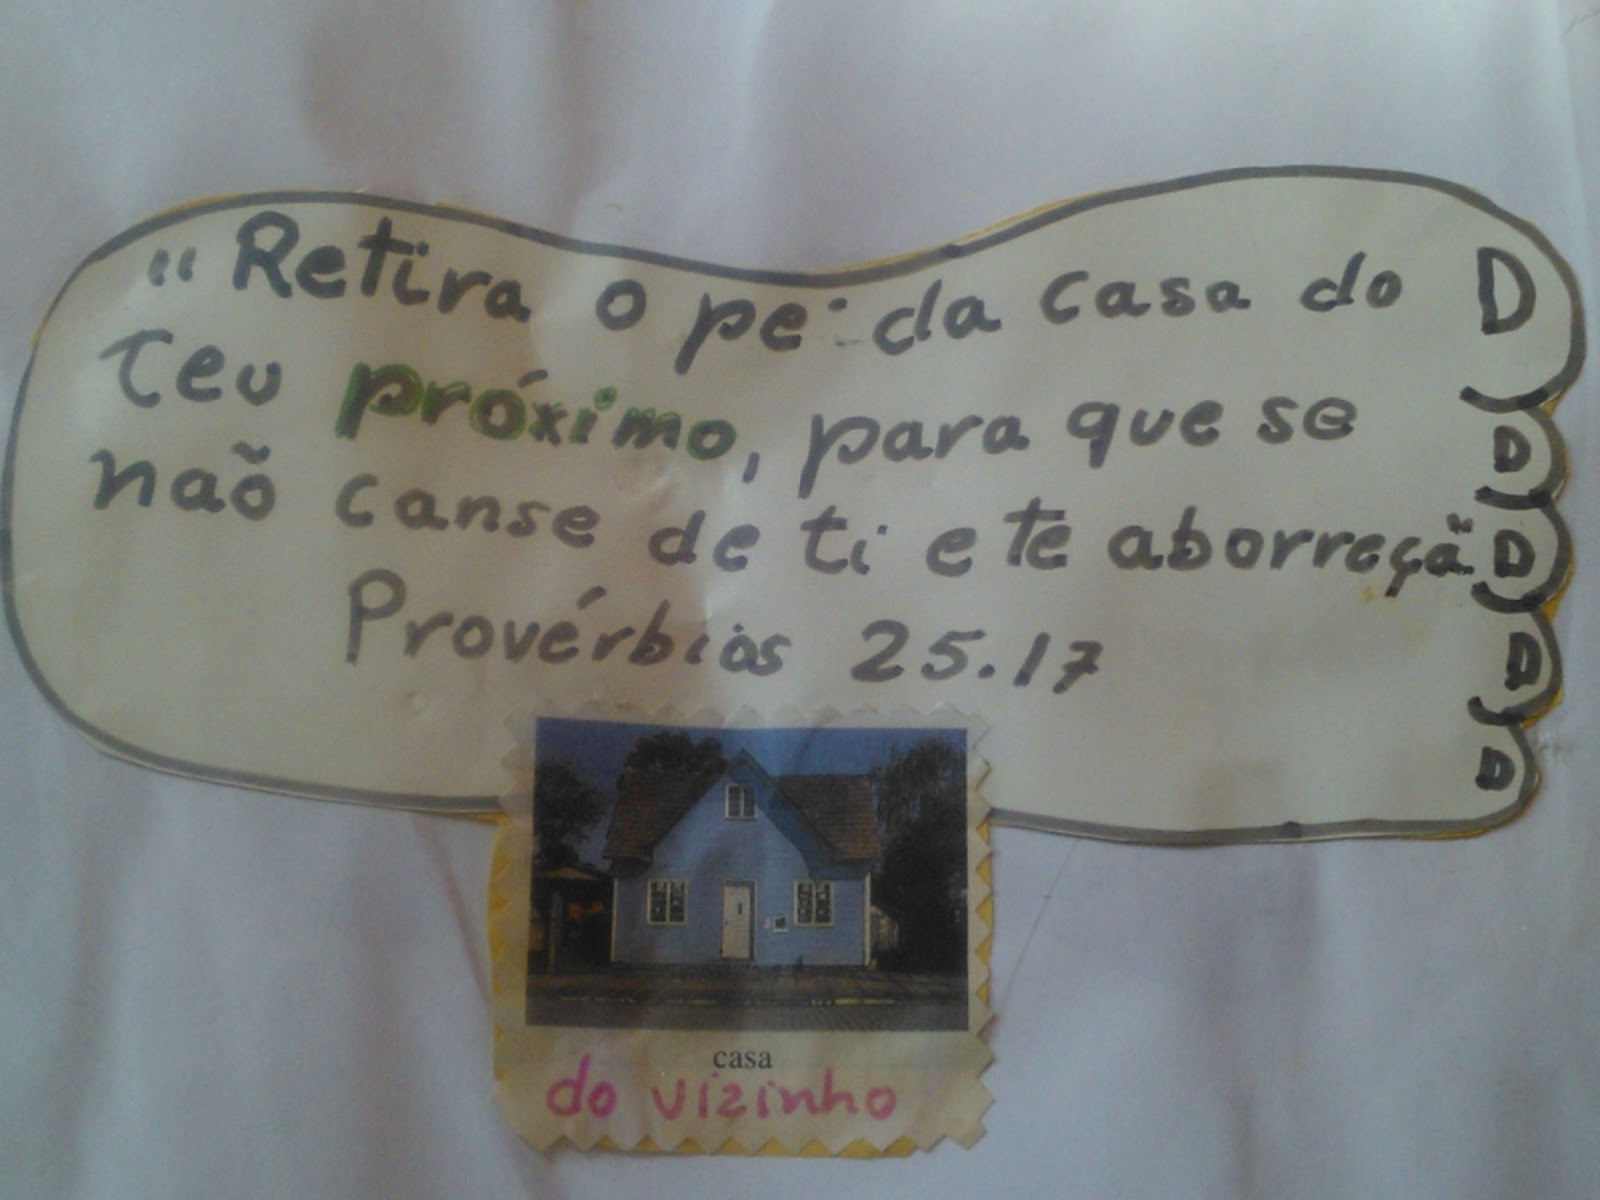 "Retira o pé da casa do
teu próximo, para que se
não canse de ti e te aborreça"
Provérbios 25.17
casa
do vizinho